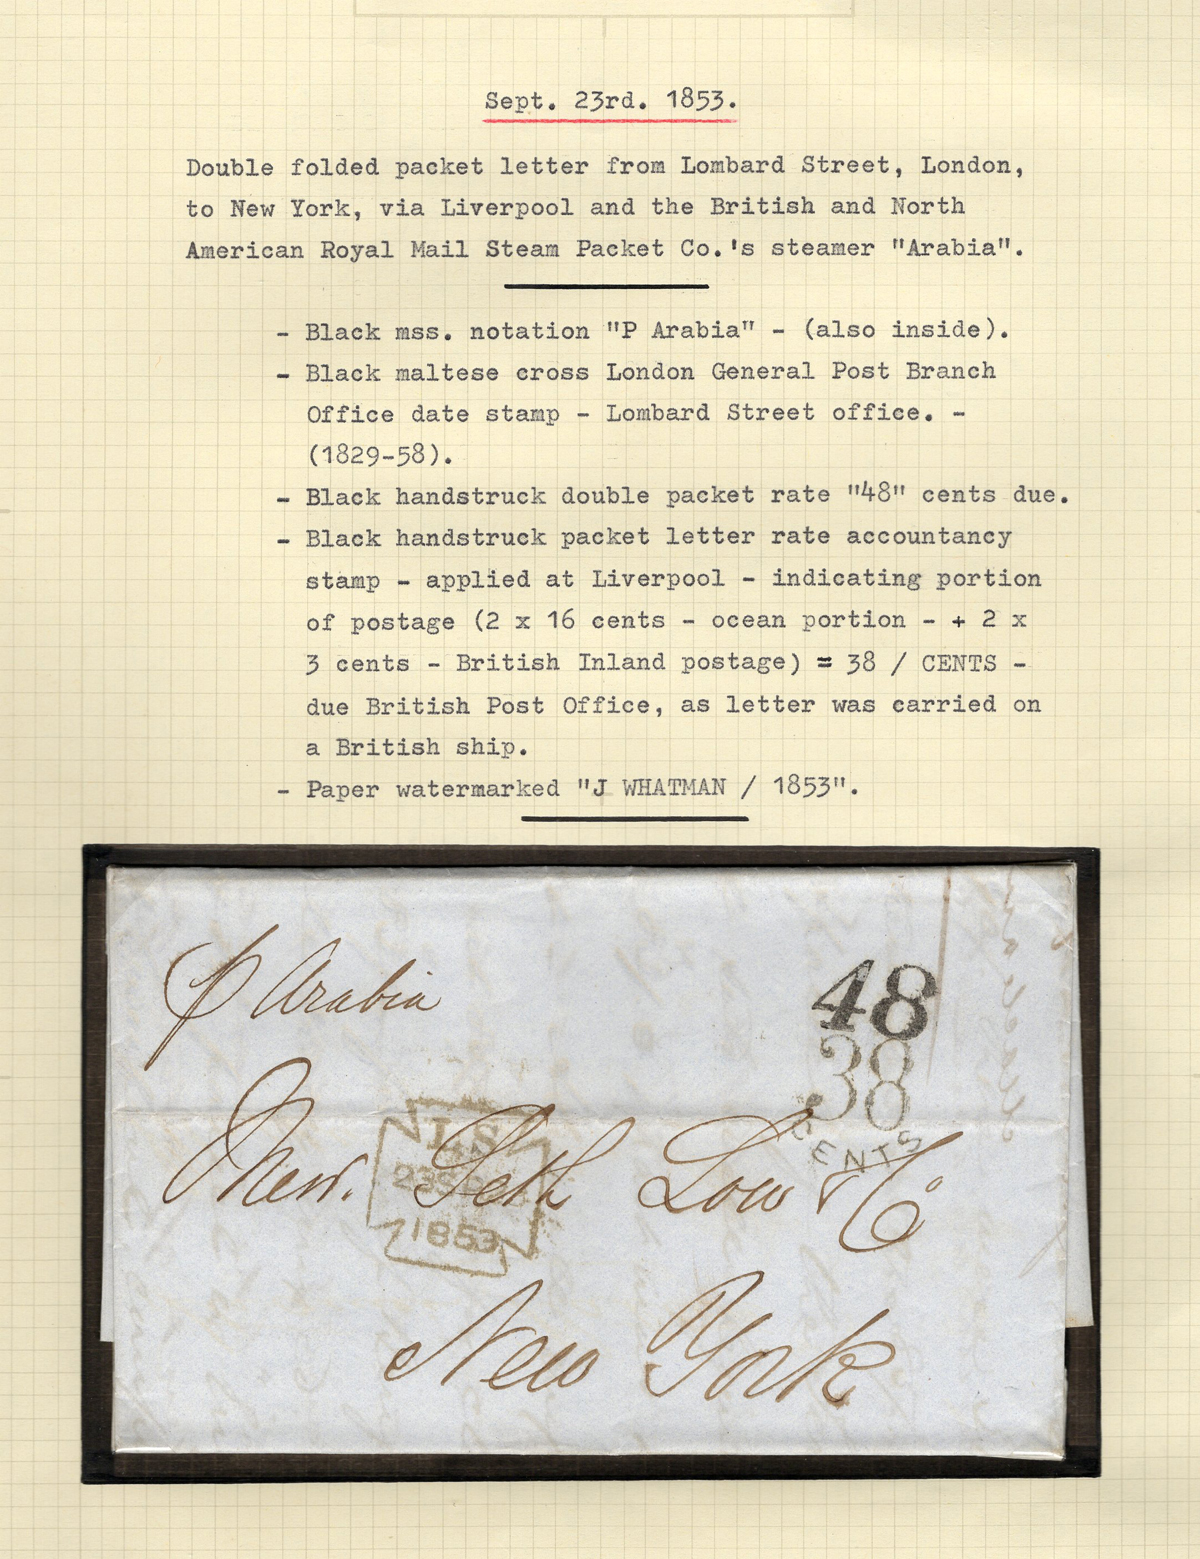 Sept. 23rd. 1853.
Double folded packet letter from Lombard Street, London,
to New York, via Liverpool and the British and North
American Royal Mail Steam Packet Co.'s steamer "Arabia".
- Black mss. notation "P Arabia" - (also inside).
- Black maltese cross London General Post Branch
Office date stamp - Lombard Street office. -
(1829-58).
- Black handstruck double packet rate "48" cents due.
- Black handstruck packet letter rate accountancy
stamp - applied at Liverpool - indicating portion
of postage (2 x 16 cents - ocean portion - + 2 x
3 cents - British Inland postage) = 38 / CENTS -
due British Post Office, as letter was carried on
a British ship.
- Paper watermarked "J WHATMAN / 1853".
p Arabia
48
38
CENTS
LS
23 SP
1853
Messrs. Seth Low & Co
New York